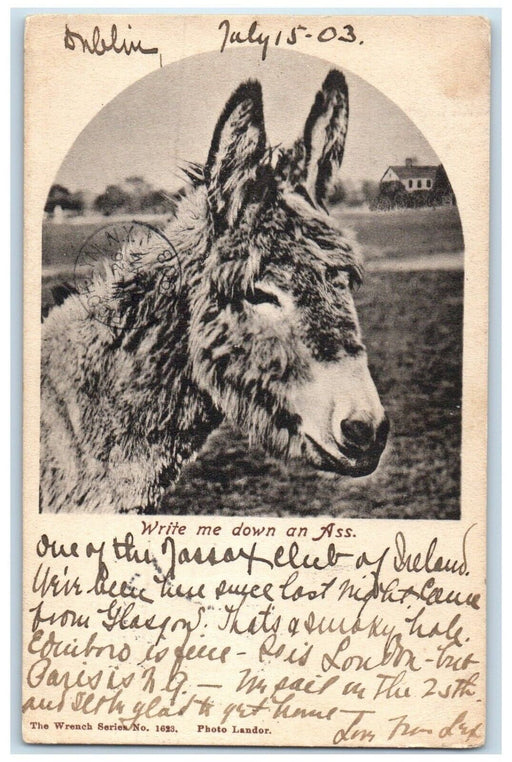 Dublin, July 15-03.
Write me down an Ass.
One of the Jassax club of Ireland.
We've been here since last night. Came
from Glasgow. That's a smoky hole.
Edinboro is fine - So is London - but
Paris is N.G. - We sail on the 25th.
and glad to get home -
The Wrench Series No. 1623. Photo Landor.
Love from